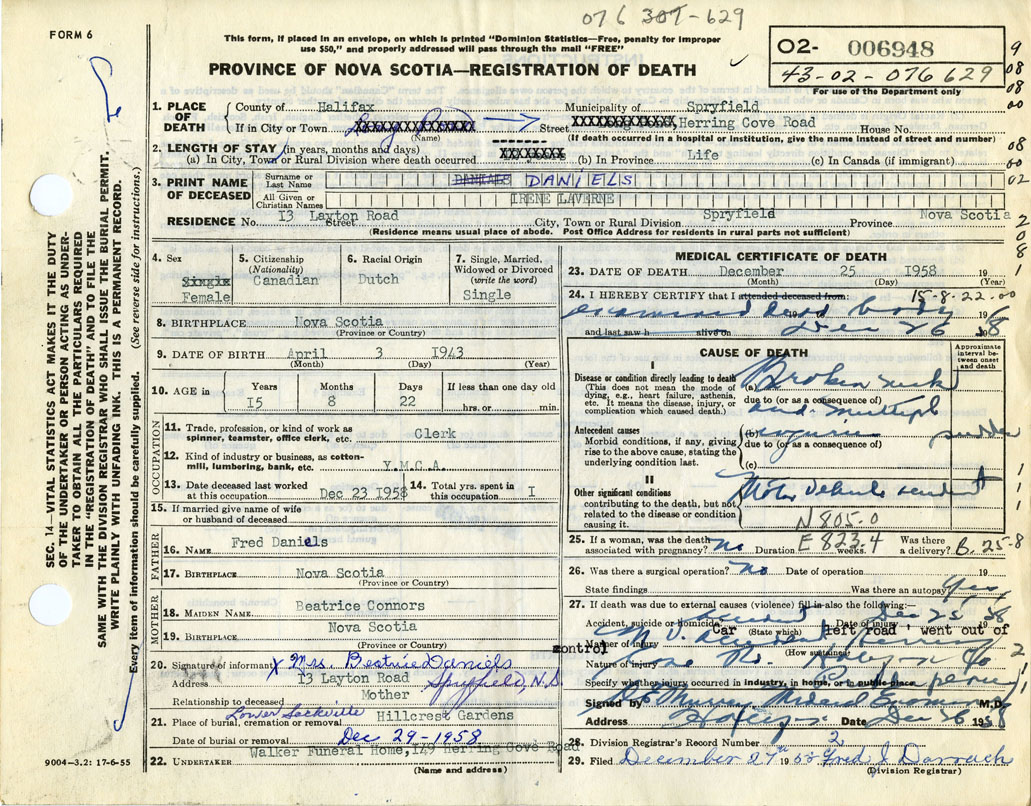 076 307-629
FORM 6
This form, if placed in an envelope, on which is printed "Dominion Statistics—Free, penalty for improper
use $50," and properly addressed will pass through the mail "FREE"
PROVINCE OF NOVA SCOTIA—REGISTRATION OF DEATH
O2- 006948
43-02-076 629
For use of the Department only
9
08
08
00
08
00
02
2
0
8
1
1. PLACE OF DEATH County of Halifax Municipality of Spryfield
If in City or Town XXXXXXXXXXXXXXX Street XXXXXXXXXXXXX Herring Cove Road House No.
(Name) (If death occurred in a hospital or institution, give the name instead of street and number)
2. LENGTH OF STAY (in years, months and days)
(a) In City, Town or Rural Division where death occurred XXXXXXXX (b) In Province Life (c) In Canada (if immigrant)
3. PRINT NAME OF DECEASED Surname or Last Name DANIALS DANIELS
All Given or Christian Names IRENE LAVERNE
RESIDENCE No. I3 Layton Road City, Town or Rural Division Spryfield Province Nova Scotia
(Residence means usual place of abode. Post Office Address for residents in rural parts not sufficient)
SEC. 14—VITAL STATISTICS ACT MAKES IT THE DUTY
OF THE UNDERTAKER OR PERSON ACTING AS UNDER-
TAKER TO OBTAIN ALL THE PARTICULARS REQUIRED
IN THE "REGISTRATION OF DEATH" AND TO FILE THE
SAME WITH THE DIVISION REGISTRAR WHO SHALL ISSUE THE BURIAL PERMIT.
WRITE PLAINLY WITH UNFADING INK. THIS IS A PERMANENT RECORD.
Every item of information should be carefully supplied. (See reverse side for instructions.)
4. Sex Single Female
5. Citizenship (Nationality) Canadian
6. Racial Origin Dutch
7. Single, Married, Widowed or Divorced (write the word) Single
8. BIRTHPLACE Nova Scotia
(Province or Country)
9. DATE OF BIRTH April 3 I943
(Month) (Day) (Year)
10. AGE in Years I5 Months 8 Days 22 If less than one day old hrs. or min.
OCCUPATION
11. Trade, profession, or kind of work as
spinner, teamster, office clerk, etc. Clerk
12. Kind of industry or business, as cotton-
mill, lumbering, bank, etc. Y.M.C.A.
13. Date deceased last worked
at this occupation Dec 23 I958
14. Total yrs. spent in
this occupation I
15. If married give name of wife
or husband of deceased
FATHER
16. NAME Fred Daniels
17. BIRTHPLACE Nova Scotia
(Province or Country)
MOTHER
18. MAIDEN NAME Beatrice Connors
19. BIRTHPLACE Nova Scotia
(Province or Country)
20. Signature of informant X Mrs. Beatrice Daniels
Address I3 Layton Road Spryfield, N.S.
Relationship to deceased Mother
21. Place of burial, cremation or removal Lower Sackville Hillcrest Gardens
Date of burial or removal Dec 29-1958
22. UNDERTAKER Walker Funeral Home, I49 Herring Cove Road
(Name and address)
9004—3.2: 17-6-55
MEDICAL CERTIFICATE OF DEATH
23. DATE OF DEATH December 25 I958 19
(Month) (Day) (Year)
15-8-22-00
24. I HEREBY CERTIFY that I attended deceased from:
examined dead body
19 to 19
and last saw h alive on Dec 26 58
CAUSE OF DEATH
Approximate interval between onset and death
I
Disease or condition directly leading to death
(This does not mean the mode of
dying, e.g., heart failure, asthenia,
etc. It means the disease, injury, or
complication which caused death.)
(a) Broken neck
due to (or as a consequence of)
and multiple
Antecedent causes
Morbid conditions, if any, giving
rise to the above cause, stating the
underlying condition last.
(b) injuries sudden
due to (or as a consequence of)
(c)
II
Other significant conditions
contributing to the death, but not
related to the disease or condition
causing it.
Motor Vehicle accident
N 805.0
1
1
1
1
25. If a woman, was the death
associated with pregnancy? no Duration E 823.4 weeks. Was there a delivery? B. 25-8
26. Was there a surgical operation? no Date of operation 19
State findings Was there an autopsy? Yes
27. If death was due to external causes (violence) fill in also the following:
Accident, suicide or homicide accident Date of injury Dec 25 1958
(State which)
Manner of injury M V accident Car 'left road' went out of
control
(How sustained)
2
Nature of injury
Specify whether injury occurred in industry, in home, or in public place
1
Signed by Medical M.D.
Address Halifax Date Dec 26 1958
28. Division Registrar's Record Number 2
29. Filed December 27th 19 58 Fred J Darrach
(Division Registrar)